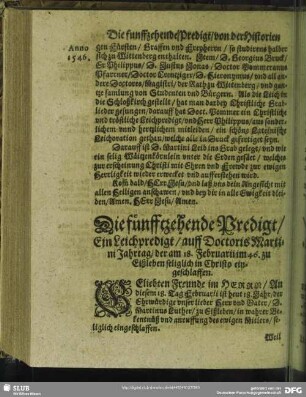 Die funfftzehende Predigt/ von der Historien
Anno
1546.
gen Fürsten/ Graffen vnd Freyherrn/ so studirens halber
sich zu Wittenberg enthalten. Item/ D. Georgius Bruck/
Er Philippus/ D. Justus Jonas/ Doctor Pommeranus
Pfarrner/ Doctor Creutziger/ D. Hieronymus/ vnd all an-
dere Doctores/ Magistri/ der Rath zu Wittenberg/ vnd gan-
tze samlung von Studenten vnd Bürgern. Als die Leich in
die Schloßkirch gestellt/ hat man darbey Christliche Grab-
lieder gesungen/ darauff hat Doct. Pommer ein Christliche
vnd tröstliche Leichpredigt/ vnd Herr Philippus/ aus sonder-
lichem vnd hertzlichem mitleiden/ ein schöne Lateinische
Leichoration gethan/ welche alle im Druck gefertiget seyn.
Darauff ist D. Martini Leib ins Grab gelegt/ vnd wie
ein selig Weitzenkörnlein vnter die Erden gesäet/ welchs
zur erscheinung Christi mit Ehren vnd Frewde zur ewigen
Herrligkeit wieder erwecket vnd aufferstehen wird.
Kom bald/ HErr Jesu/ vnd laß vns dein Angesicht mit
allen Heiligen anschawen/ vnd bey dir in alle Ewigkeit blei-
ben/ Amen, HErr Jesu/ Amen.
Die funfftzehende Predigt/
Ein Leichpredigt/ auff Doctoris Marti-
ni Jahrtag/ der am 18. Februarii im 46. zu
Eißleben seliglich in Christo ein-
geschlaffen.
GEliebten Freunde im HERRN/ An
diesem 18. Tag Februarij ist heut 18. Jahr/ der
Ehrwirdige vnser lieber Herr vnd Vater/ D.
Martinus Luther/ zu Eißleben/ in wahrer Be-
kentnuß vnd anruffung des ewigen Mitlers/ se-
liglich eingeschlaffen.
Weil
SLUB